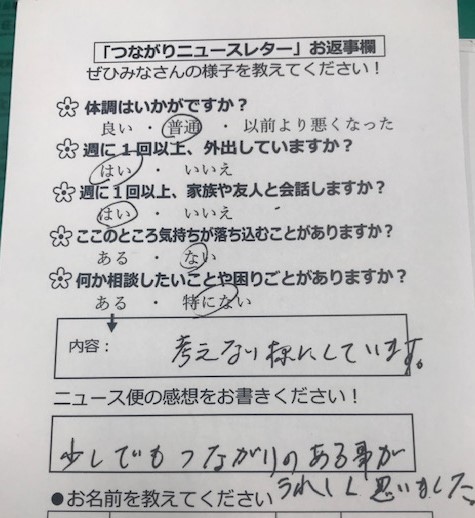 「つながりニュースレター」お返事欄
ぜひみなさんの様子を教えてください！
体調はいかがですか？
良い・普通・以前より悪くなった
週に１回以上、外出していますか？
はい・いいえ
週に１回以上、家族や友人と会話しますか？
はい・いいえ
ここのところ気持ちが落ち込むことがありますか？
ある・ない
何か相談したいことや困りごとがありますか？
ある・特にない
内容：考えない様にしています。
ニュース便の感想をお書きください！
少しでもつながりのある事が
うれしく思いました
●お名前を教えてください